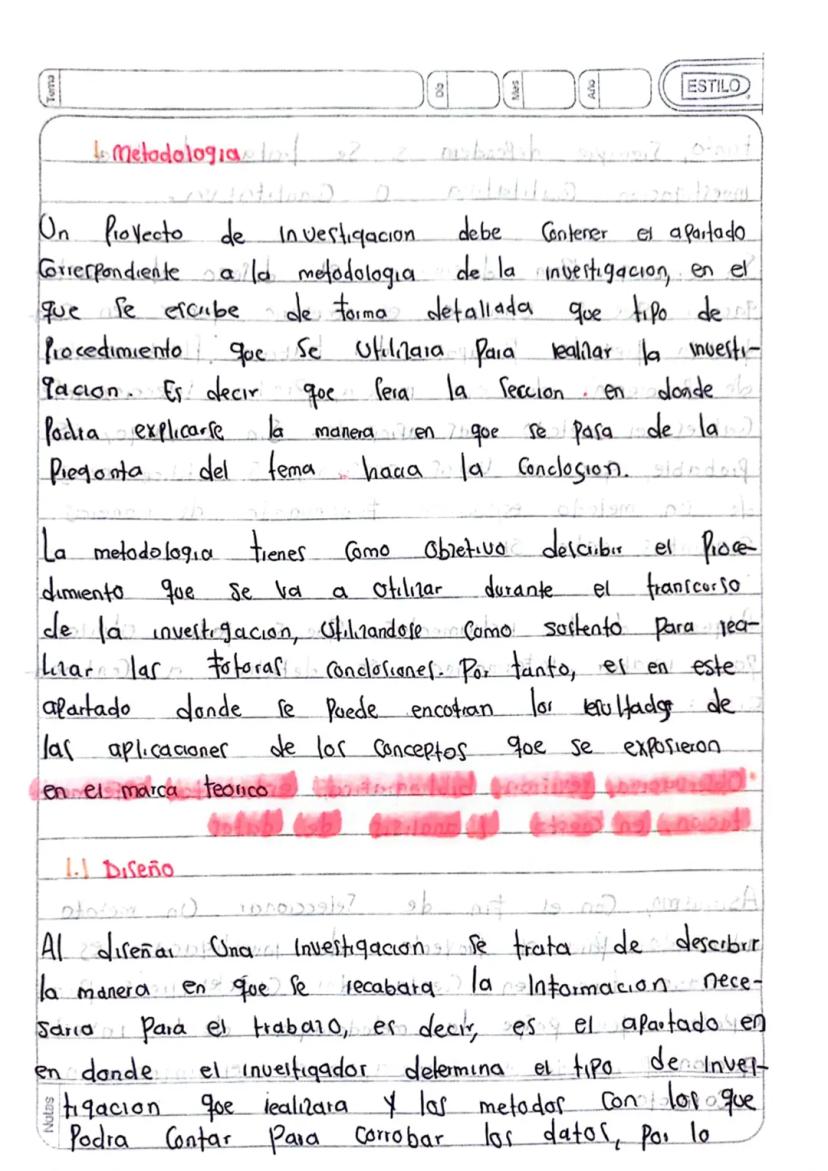 Tema Día Mes Año ESTILO
1. Metodologia
Un Proyecto de investigacion debe contener el apartado
Correspondiente a la metodologia de la investigacion, en el
que se escribe de forma detallada que tipo de
Procedimiento que se utilizara para realizar la investi-
gacion. Es decir que sera la seccion en donde
Podra explicarse la manera en que se pasa de la
Pregunta del tema hacia la conclusion.
La metodologia tienes como objetivo describir el Proce-
dimiento que se va a utilizar durante el transcurso
de la investigacion, utilizandose como sustento para rea-
lizar las futuras conclusiones. Por tanto, es en este
apartado donde se puede encotran los resultados de
las aplicaciones de los conceptos que se expusieron
en el marca teorico
1.1 Diseño
Al diseñar una investigacion se trata de describir
la manera en que se recabara la informacion nece-
sario para el trabajo, es decir, es el apartado en
en donde el investigador determina el tipo de inves-
tigacion que realizara y los metodos con los que
Notas
Podra contar para corrobar los datos, por lo